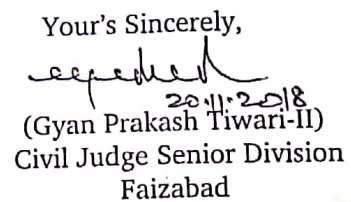 Your's Sincerely,
20.11.2018
(Gyan Prakash Tiwari-II)
Civil Judge Senior Division
Faizabad